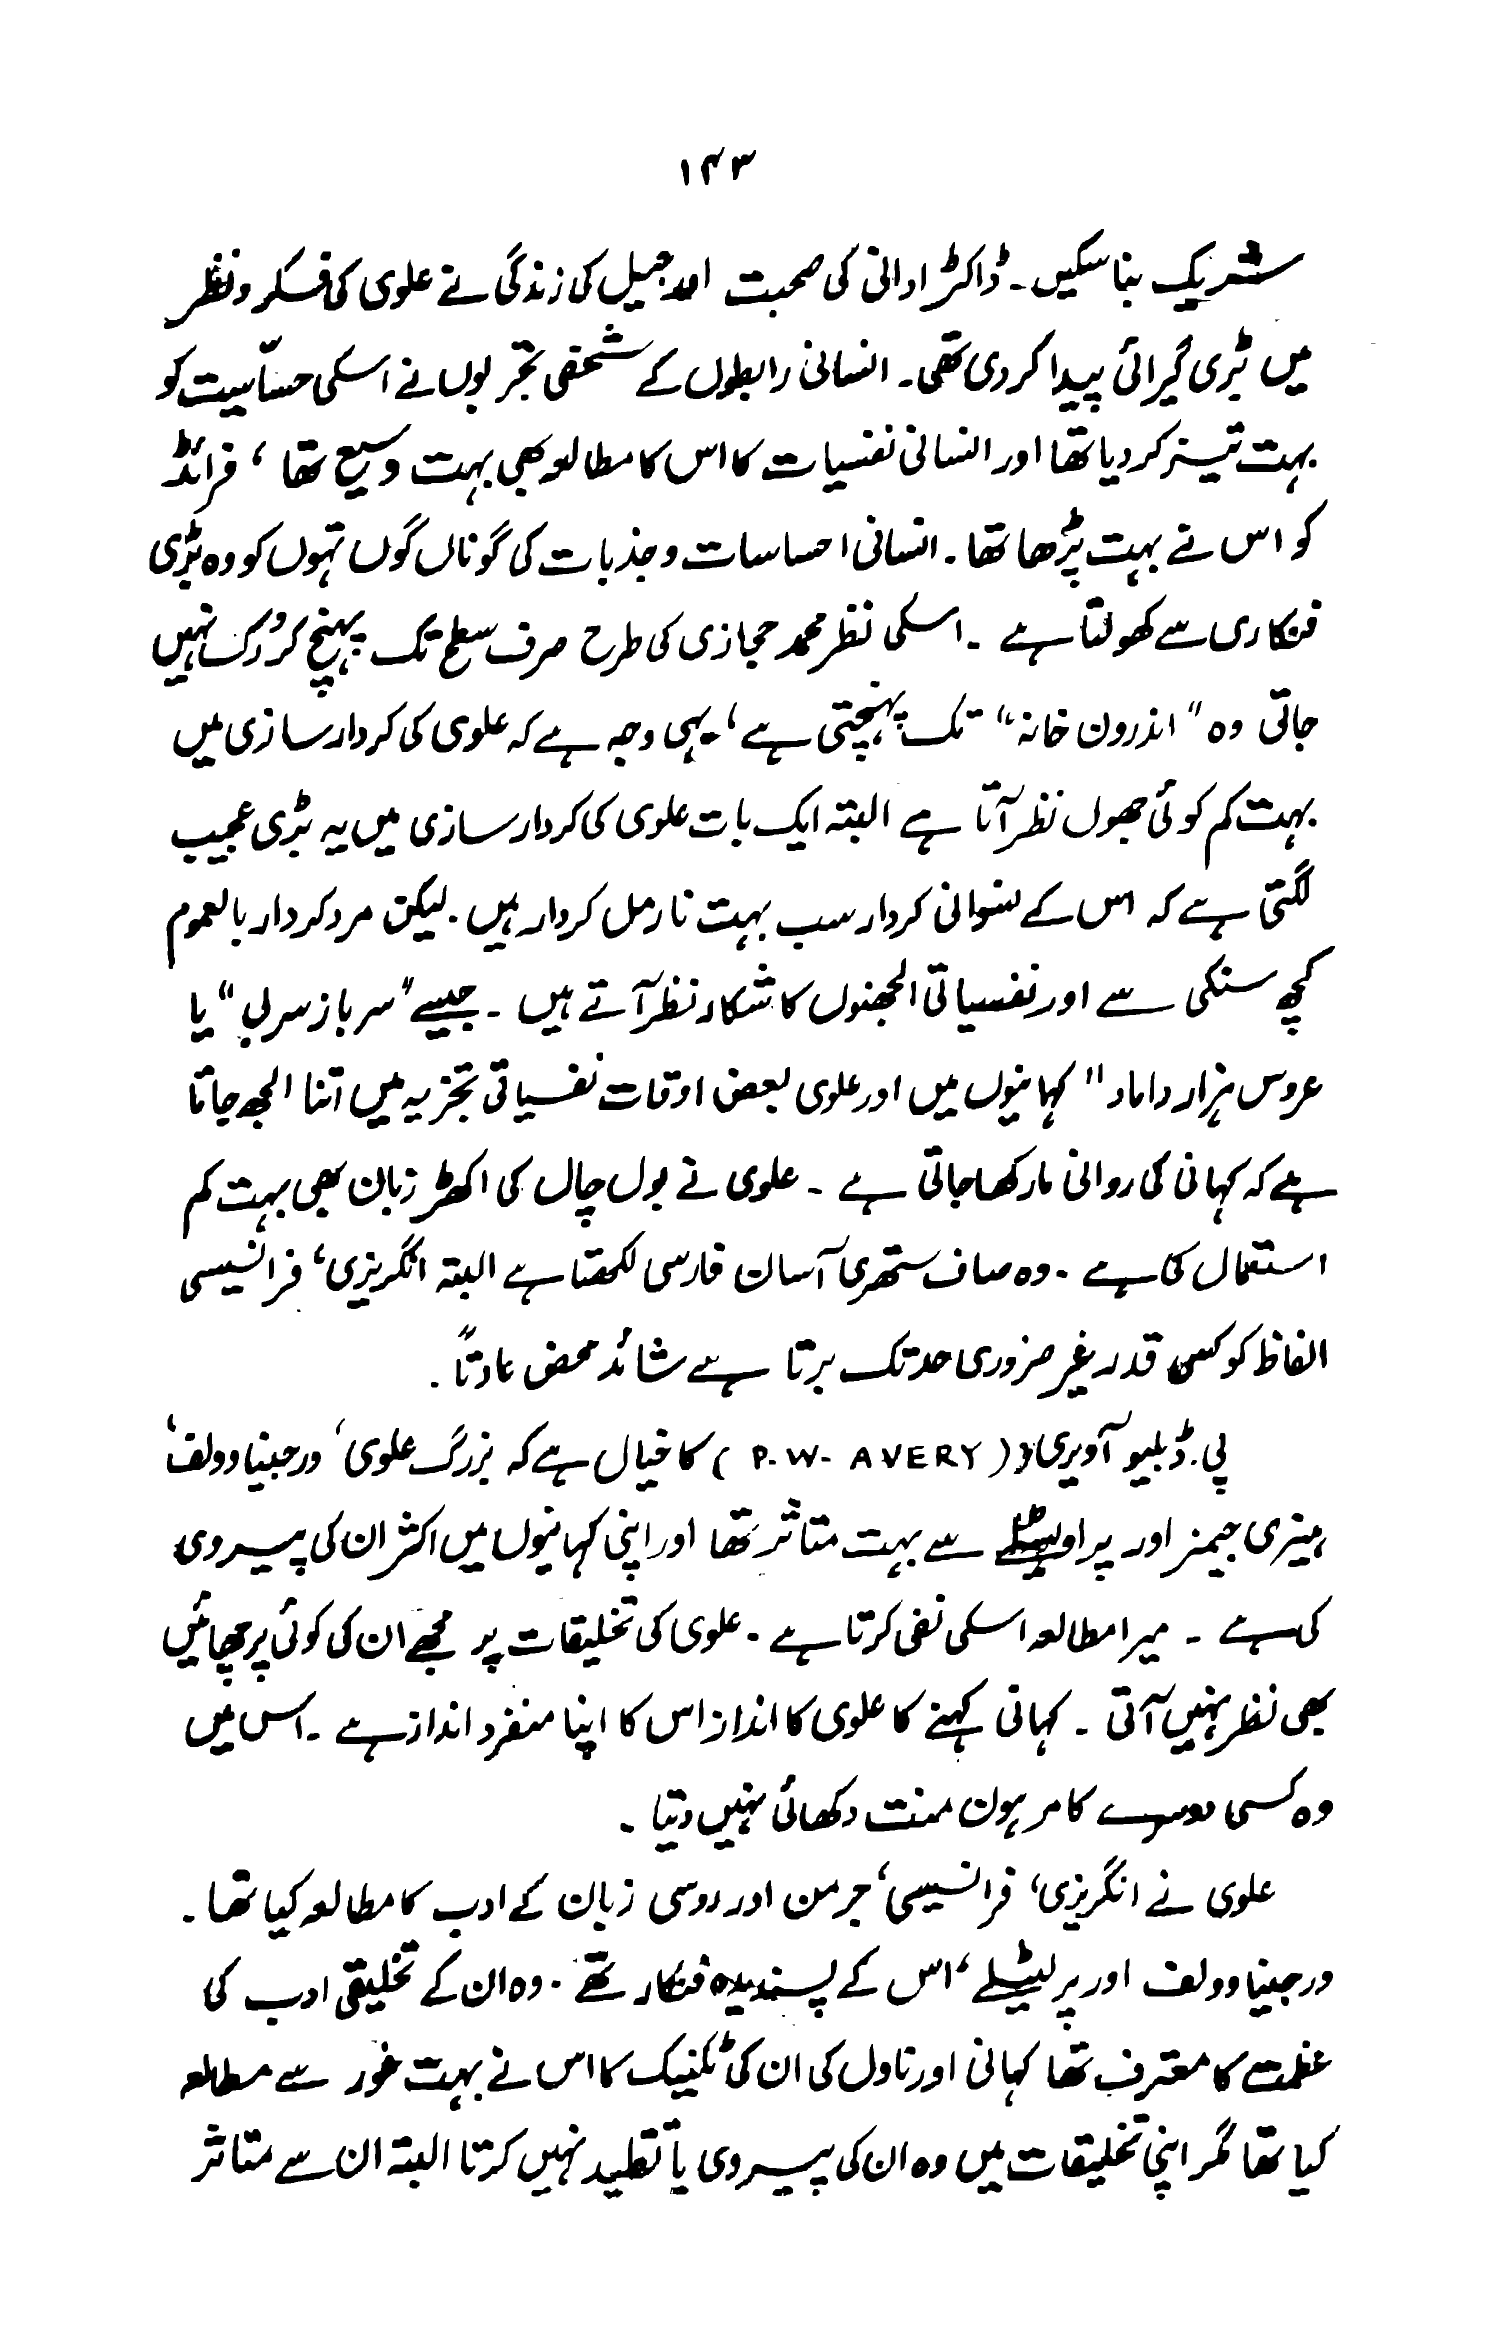 ۱۴۳
شریک بنا سکیں ۔ ڈاکٹر ارانی کی صحبت اور جیل کی زندگی نے علوی کی فکر و نظر
میں بڑی گیرائی پیدا کر دی تھی ۔ انسانی رابطوں کے شخصی تجربوں نے اسکی حسّاسیت کو
بہت تیز کر دیا تھا اور انسانی نفسیات کا اس کا مطالعہ بھی بہت وسیع تھا ، فرائڈ
کو اس نے بہت پڑھا تھا ۔ انسانی احساسات و جذبات کی گوناں گوں تہوں کو وہ بڑی
فنکاری سے کھولتا ہے ۔ اسکی نظر محمد حجازی کی طرح صرف سطح تک پہنچ کر رُک نہیں
جاتی وہ " اندرون خانہ " تک پہنچتی ہے ، یہی وجہ ہے کہ علوی کی کردار سازی میں
بہت کم کوئی جھول نظر آتا ہے البتہ ایک بات علوی کی کردار سازی میں یہ بڑی عجیب
لگتی ہے کہ اس کے نسوانی کردار سب بہت نارمل کردار ہیں . لیکن مرد کردار بالعموم
کچھ سنکی سے اور نفسیاتی الجھنوں کا شکار نظر آتے ہیں ۔ جیسے " سرباز سربی " یا
عروس ہزار داماد " کہانیوں میں اور علوی بعض اوقات نفسیاتی تجزیہ میں اتنا الجھ جاتا
ہے کہ کہانی کی روانی مار کھا جاتی ہے ۔ علوی نے بول چال کی اکھڑ زبان بھی بہت کم
استعمال کی ہے ۔ وہ صاف ستھری آسان فارسی لکھتا ہے البتہ انگریزی ، فرانسیسی
الفاظ کو کسی قدر غیر ضروری حد تک برتا ہے شائد محض عادتاً .
پی . ڈبلیو آویری ( P. W. AVERY ) کا خیال ہے کہ بزرگ علوی ، ورجینا وولف ،
ہینری جیمز اور سے بہت متاثر تھا اور اپنی کہانیوں میں اکثر ان کی پیروی
کی ہے ۔ میرا مطالعہ اسکی نفی کرتا ہے ۔ علوی کی تخلیقات پر مجھے ان کی کوئی پرچھائیں
بھی نظر نہیں آتی ۔ کہانی کہنے کا علوی کا انداز اس کا اپنا منفرد انداز ہے ۔ اس میں
وہ کسی دوسرے کا مرہون منت دکھائی نہیں دیتا ۔
علوی نے انگریزی ، فرانسیسی ، جرمن اور روسی زبان کے ادب کا مطالعہ کیا تھا ۔
ورجینا وولف اور پرلیٹلے ، اس کے پسندیدہ فنکار تھے ۔ وہ ان کے تخلیقی ادب کی
عظمت کا معترف تھا کہانی اور ناول کی ان کی ٹکنیک کا اس نے بہت غور سے مطالعہ
کیا تھا مگر اپنی تخلیقات میں وہ ان کی پیروی یا تقلید نہیں کرتا البتہ ان سے متاثر